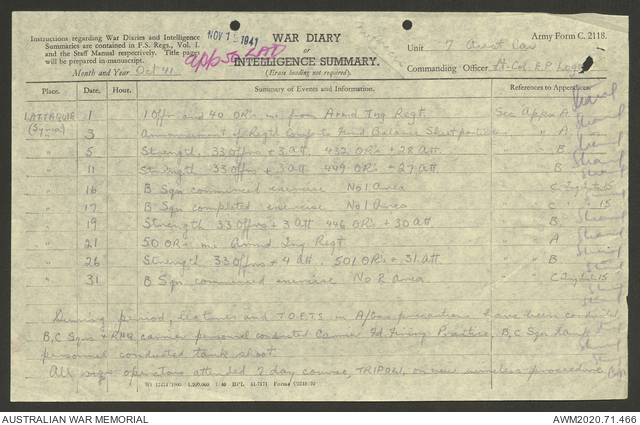 Instructions regarding War Diaries and Intelligence
Summaries are contained in F.S. Regs., Vol. I.
and the Staff Manual respectively. Title pages
will be prepared in manuscript.
Month and Year Oct 41
NOV 15 1941
WAR DIARY
or
INTELLIGENCE SUMMARY.
(Erase heading not required).
Army Form C. 2118.
Unit 7 Aust Cav
Commanding Officer Lt-Col. E.P. Logan
Place. Date. Hour. Summary of Events and Information. References to Appendices
LATTAQUIE 1 1 Offr and 40 ORs m/i from Armd Trg Regt. See Appx A
(Syria) 3 Announcement of Regtl Comp to Fund Balance Sheet " " A
" 5 Strength, 33 Offrs + 3 att 432 ORs + 28 att " " B
" 11 Strength 33 Offrs + 3 att 449 ORs + 27 att " " B
" 16 B Sqn commenced exercise No 1 Area " " C 15
" 17 B Sqn completed exercise No 1 Area " " C " 15
" 19 Strength 33 Offrs + 3 att 446 ORs + 30 att " " B
" 21 50 ORs m/i Armd Trg Regt " " A
" 26 Strength 33 Offrs + 4 att 501 ORs + 31 att " " B
" 31 B Sqn commenced exercise No 2 area " " C 15
During period, lectures and T.O.E.T.S in A/Gas precautions have been conducted
B, C Sqns + RHQ carrier personnel conducted Carrier Fd Firing Practice, B, C Sqn tank
personnel conducted tank shoot.
All sigs operators attended 7 day course, TRIPOLI, on new wireless procedure
AUSTRALIAN WAR MEMORIAL
AWM2020.71.466